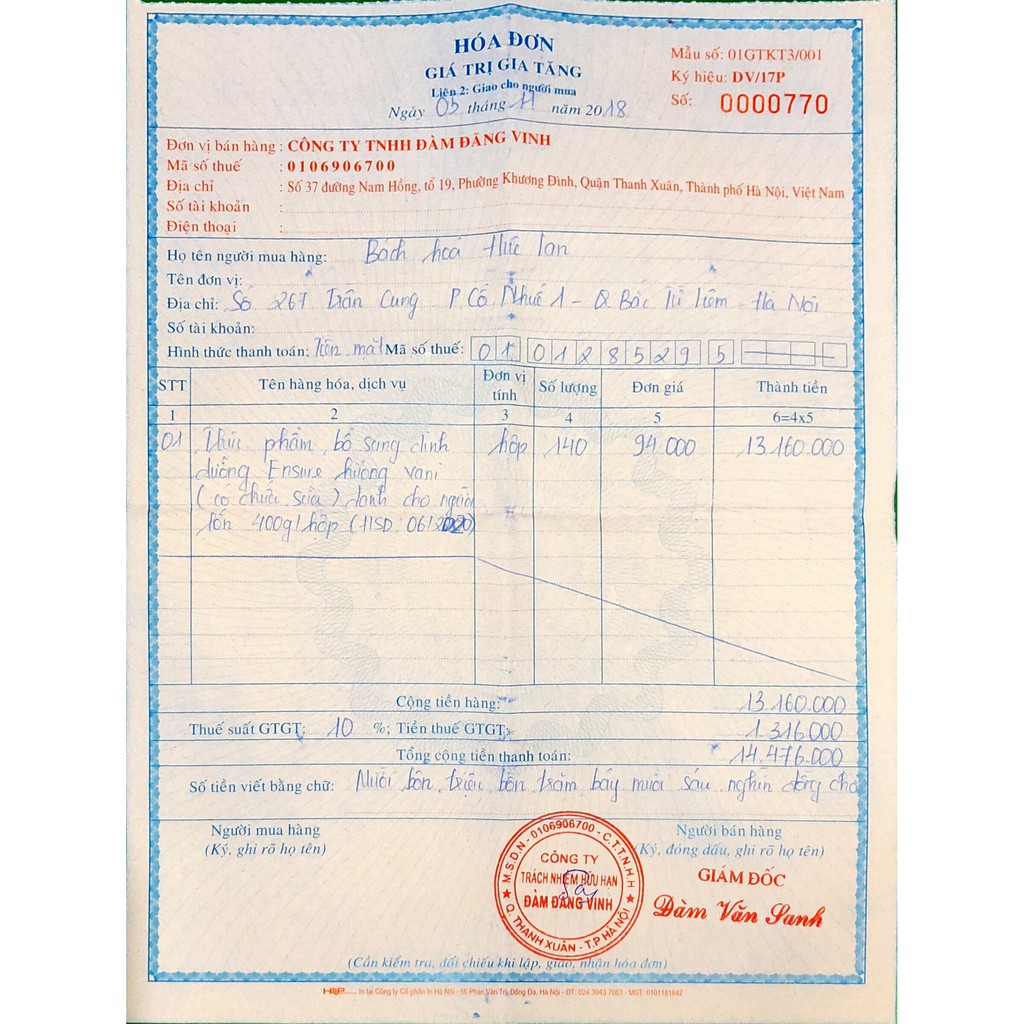 HÓA ĐƠN
GIÁ TRỊ GIA TĂNG
Liên 2: Giao cho người mua
Ngày 05 tháng 11 năm 2018
Mẫu số: 01GTKT3/001
Ký hiệu: DV/17P
Số: 0000770
Đơn vị bán hàng : CÔNG TY TNHH ĐÀM ĐĂNG VINH
Mã số thuế : 0106906700
Địa chỉ : Số 37 đường Nam Hồng, tổ 19, Phường Khương Đình, Quận Thanh Xuân, Thành phố Hà Nội, Việt Nam
Số tài khoản :
Điện thoại :
Họ tên người mua hàng: Bách hoá Hức Lan
Tên đơn vị:
Địa chỉ: Số 267 Trần Cung P Cổ Nhuế 1 - Q Bắc Từ Liêm - Hà Nội
Số tài khoản:
Hình thức thanh toán: Tiền mặt Mã số thuế: 01 0128529 5
STT Tên hàng hóa, dịch vụ Đơn vị tính Số lượng Đơn giá Thành tiền
1 2 3 4 5 6=4x5
01 Thực phẩm bổ sung dinh hộp 140 94.000 13.160.000
dưỡng Ensure hương vani
(có chứa sữa) dành cho người
lớn 400g/hộp (HSD 06/2020)
Cộng tiền hàng: 13.160.000
Thuế suất GTGT: 10 %; Tiền thuế GTGT: 1.316.000
Tổng cộng tiền thanh toán: 14.476.000
Số tiền viết bằng chữ: Mười bốn triệu bốn trăm bảy mươi sáu nghìn đồng chẵn
Người mua hàng
(Ký, ghi rõ họ tên)
Người bán hàng
(Ký, đóng dấu, ghi rõ họ tên)
M.S.D.N - 0106906700 - C.T.T.N.H.H
CÔNG TY
TRÁCH NHIỆM HỮU HẠN
ĐÀM ĐĂNG VINH
Q. THANH XUÂN - T.P HÀ NỘI
GIÁM ĐỐC
Đàm Văn Sanh
(Cần kiểm tra, đối chiếu khi lập, giao, nhận hóa đơn)
In tại Công ty Cổ phần In Hà Nội - 55 Phan Văn Trị, Đống Đa, Hà Nội - ĐT: 024 3943 7063 - MST: 0101181842